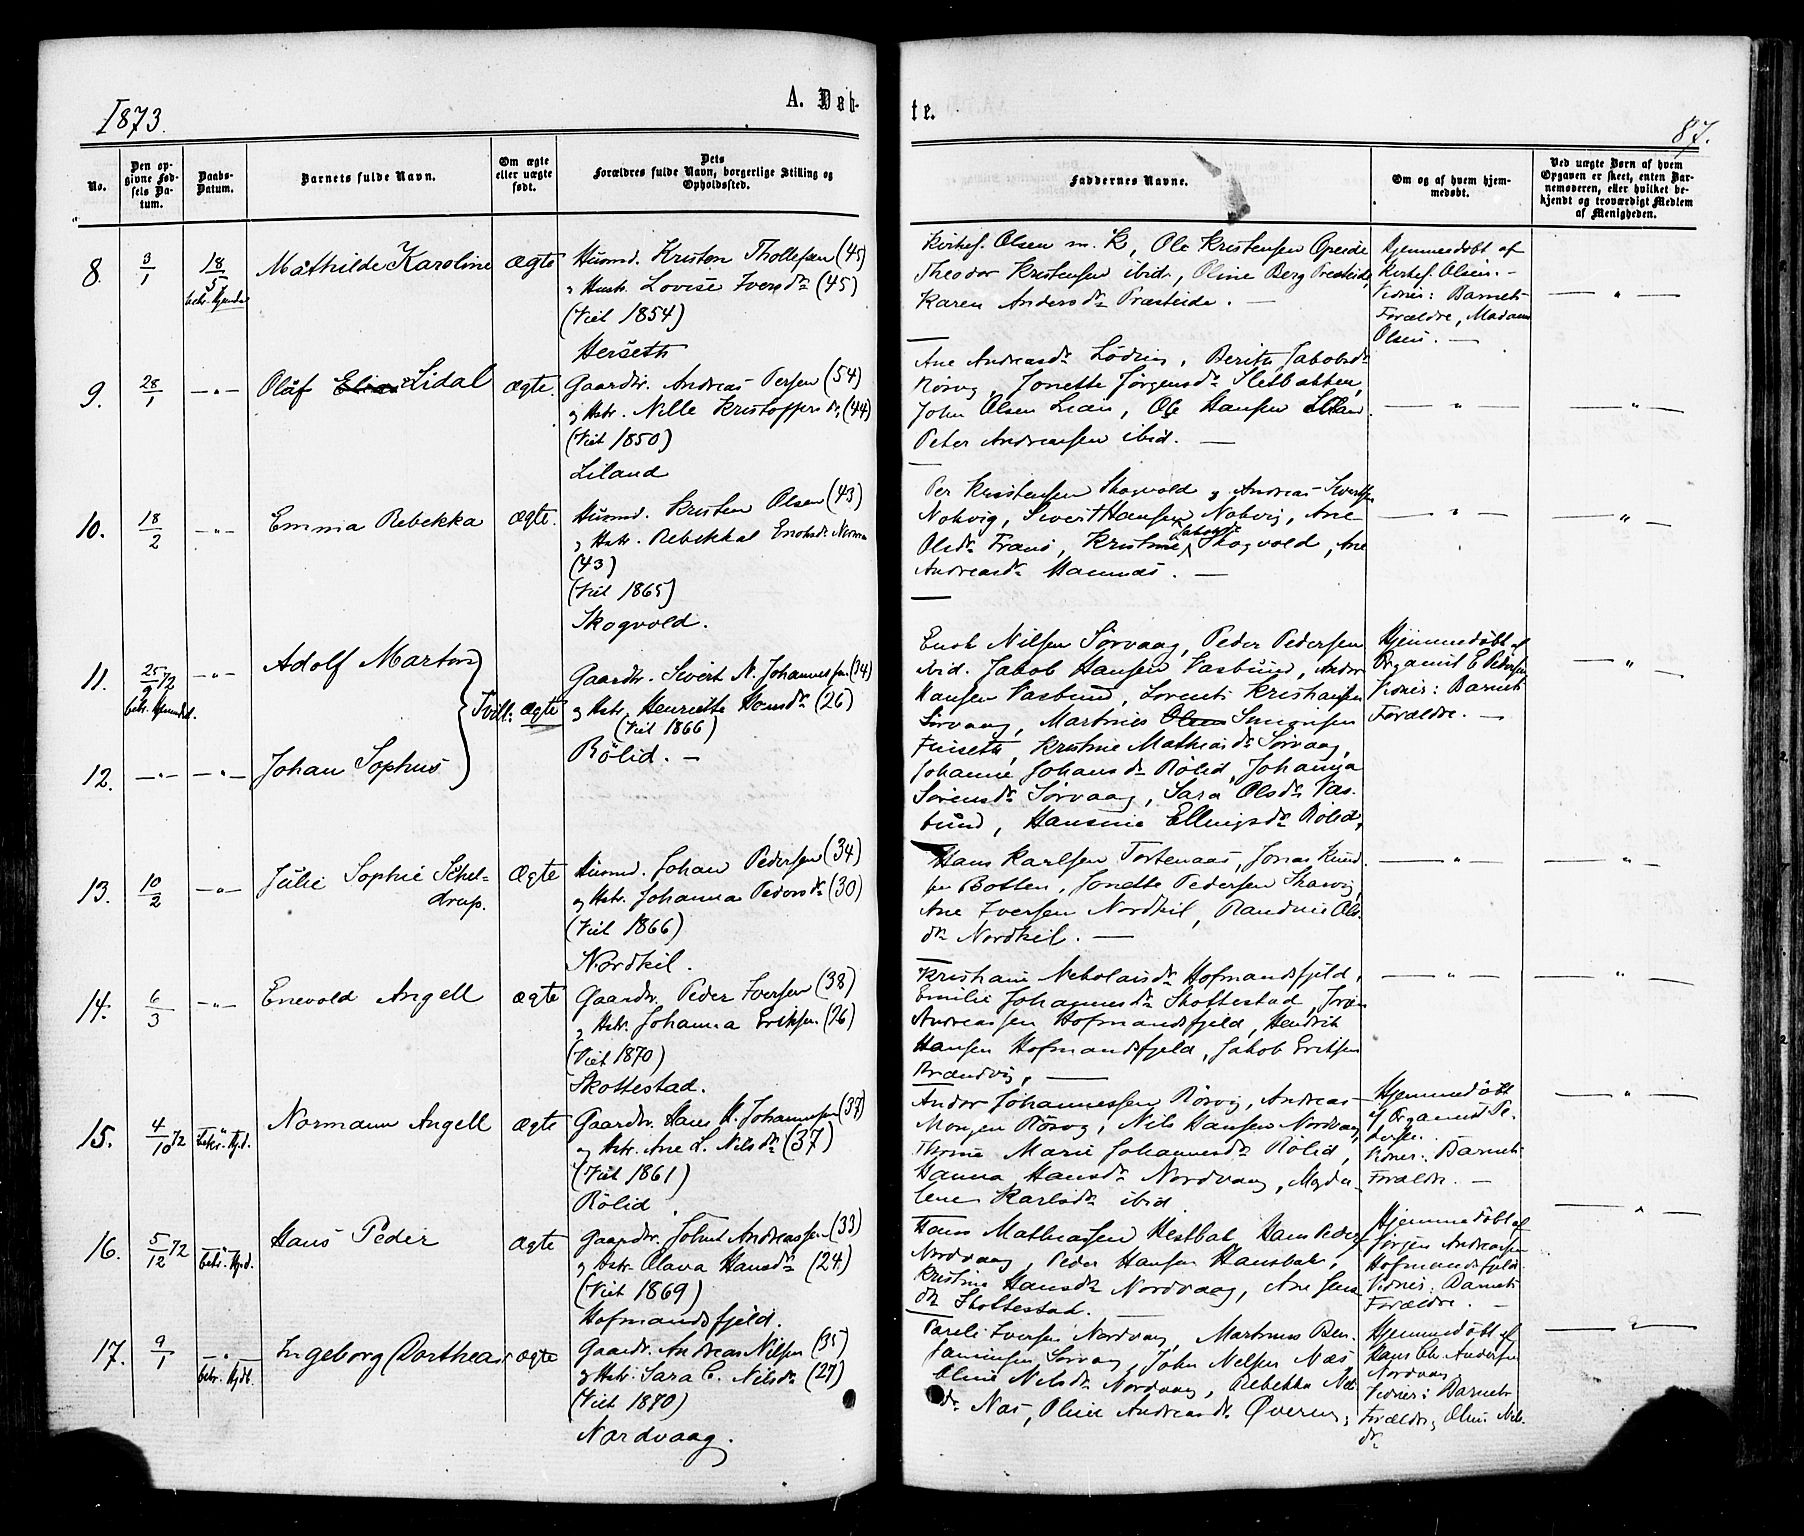 1873.
A. Døb-
te.
87.
No.
Den op-
givne Fød-
sels Da-
tum.
Daabs-
Datum.
Barnets fulde Navn.
Om ægte
eller uægte
født.
Dets
Forældres fulde Navn, borgerlige Stilling og
Opholdssted.
Faddernes Navne.
Om og af hvem hjem-
medøbt.
Ved uægte Børn af hvem
Opgaven er skeet, enten Bar-
nemoderen, eller hvilket be-
kjendt og troværdigt Medlem
af Menigheden.
8. 3/1 18/5 Mathilde Karoline Ægte Husmd. Kristen Thollefsen (45)
og Hustr. Lovise Iversdr (45)
(Viet 1854)
Herseth
Kirkes. Olsen m. K, Ole Kristensen
Theodor Kristensen ibid., Oline Berg Præsteide,
Karen Andersdr Præsteide. —
Hjemmedøbt af
Kirkes. Olsen. —
Vidner: Barnets
Forældre, Madam
Olsen. —
— " —
9. 28/1 — " — Olaf Lidal Ægte. Gaardbr. Andreas Persen (54)
og Hstr. Nille Kristoffersdr (44)
(Viet 1850)
Liland
Ane Andreasdr Lødin, Berith Jakobsdr
Rørvg, Jonette Jørgensdr Sletbakken,
John Olsen Lian, Ole Hansen
Peter Andreassen ibid. —
— " —
— " —
10. 18/2 — " — Emma Rebekka Ægte. Husmd. Kristen Olsen (43)
og Hstr. Rebekka Enoksdr
(43)
(Viet 1865)
Skogvold.
Per Kristensen Skogvold og Andreas Sivertsen
Nokvig, Sivert Hansen Nokvig, Ane
Olsdr, Kristine Jakobsdr Skogvold, Ane
Andreasdr. —
— " —
— " —
11. 25/9 72 — " — Adolf Marton
Tvill. ægte Gaardbr. Sivert N. Johannessen (34)
og Hstr. Henriette Hansdr (26)
(Viet 1866)
Rölid. —
12. — " — — " — Johan Sophus
Enok Nilsen Sørvaag, Peder Pedersen
ibid. Jakob Hansen Vasbund, Andor
Hansen Vasbund, Lorents Kristiansen
Sørvaag, Martines Simonsen
Finseth, Kristine Mathiasdr Sørvaag,
Johanne Johansdr Rølid, Johanna
Sørensdr Sørvaag, Sara Olsdr Vas-
bund, Hansine Ellingsdr Rölid,
Hjemmedøbt af
Organist E Pedersen
Vidner: Barnets
Forældre. —
— " —
13. 10/2 — " — Julie Sophie Schel-
drup.
Ægte Husmd. Johan Pedersen (34)
og Hstr. Johanna Pedersdr (30)
(Viet 1866)
Nordkil.
Hans Karlsen Tortenaas, Jonas Knud-
sen Botten, Jonette Pedersen Skarvig,
Ane Iversen Nordkil, Randine Ols-
dr Nordkil. —
— " —
— " —
14. 6/3 — " — Enevold Angell ægte Gaardbr. Peder Iversen (38)
og Hstr. Johanna Eriksen (26)
(Viet 1870)
Skottestad.
Kristiane Nikolaisdr Hofmandsfjeld,
Emilie Johannesdr Skottestad,
Andreassen Hofmandsfjeld, Hendrik
Hansen Hofmandsfjeld, Jakob Eriksen
Brændvig, —
— " —
— " —
15. 4/10 72 bekr. Hjd. Normann Angell ægte Gaardbr. Hans H. Johannessen (37)
og Hstr. Ane L. Nilsdr (37)
(Viet 1861)
Rölid.
Andor Johannessen Rörvig, Andreas
Monsen Rörvg, Nils Hansen Nordvaag,
Thrine Marie Johannesdr Rölid,
Hanna Hansdr Nordvaag, Magda-
lene Karlsdr ibid
Hjemmedøbt
af Organist Pe-
dersen.
Vidner: Barnets
Forældre. —
— " —
16. 5/12 72 bekr. Hjd. Hans Peder ægte Gaardbr. Johnt Andreassen (33)
og Hstr. Olava Hansdr (24)
(Viet 1869)
Hofmandsfjeld.
Hans Mathiassen Hestbak, Hans Peder
Nordvaag, Peder Hansen Hansbak,
Kristine Hansdr Nordvaag, Ane Jens
dr Skottestad.
Hjemmedøbt af
Jørgen Andreassen
Hofmandsfjeld.
Vidner: Barnets
Forældre. —
— " —
17. 9/1 — " — bekr. Hjdb. Ingeborg Dorthea ægte Gaardbr. Andreas Nilsen (35)
og Hstr. Sara C. Nilsdr (27)
(Viet 1870)
Nordvaag.
Pareli Iversen Nordvaag, Martinus Ben-
jaminsen Sørvaag, John Nelsen Næs
Oline Nilsdr Nordvaag, Rebekka Nils
dr Næs, Oline Andreasdr
Hjemmedøbt af
Hans Chr. Andersen
Nordvaag
Vidner: Barnets
Forældre, Oline Nils-
dr
— " —